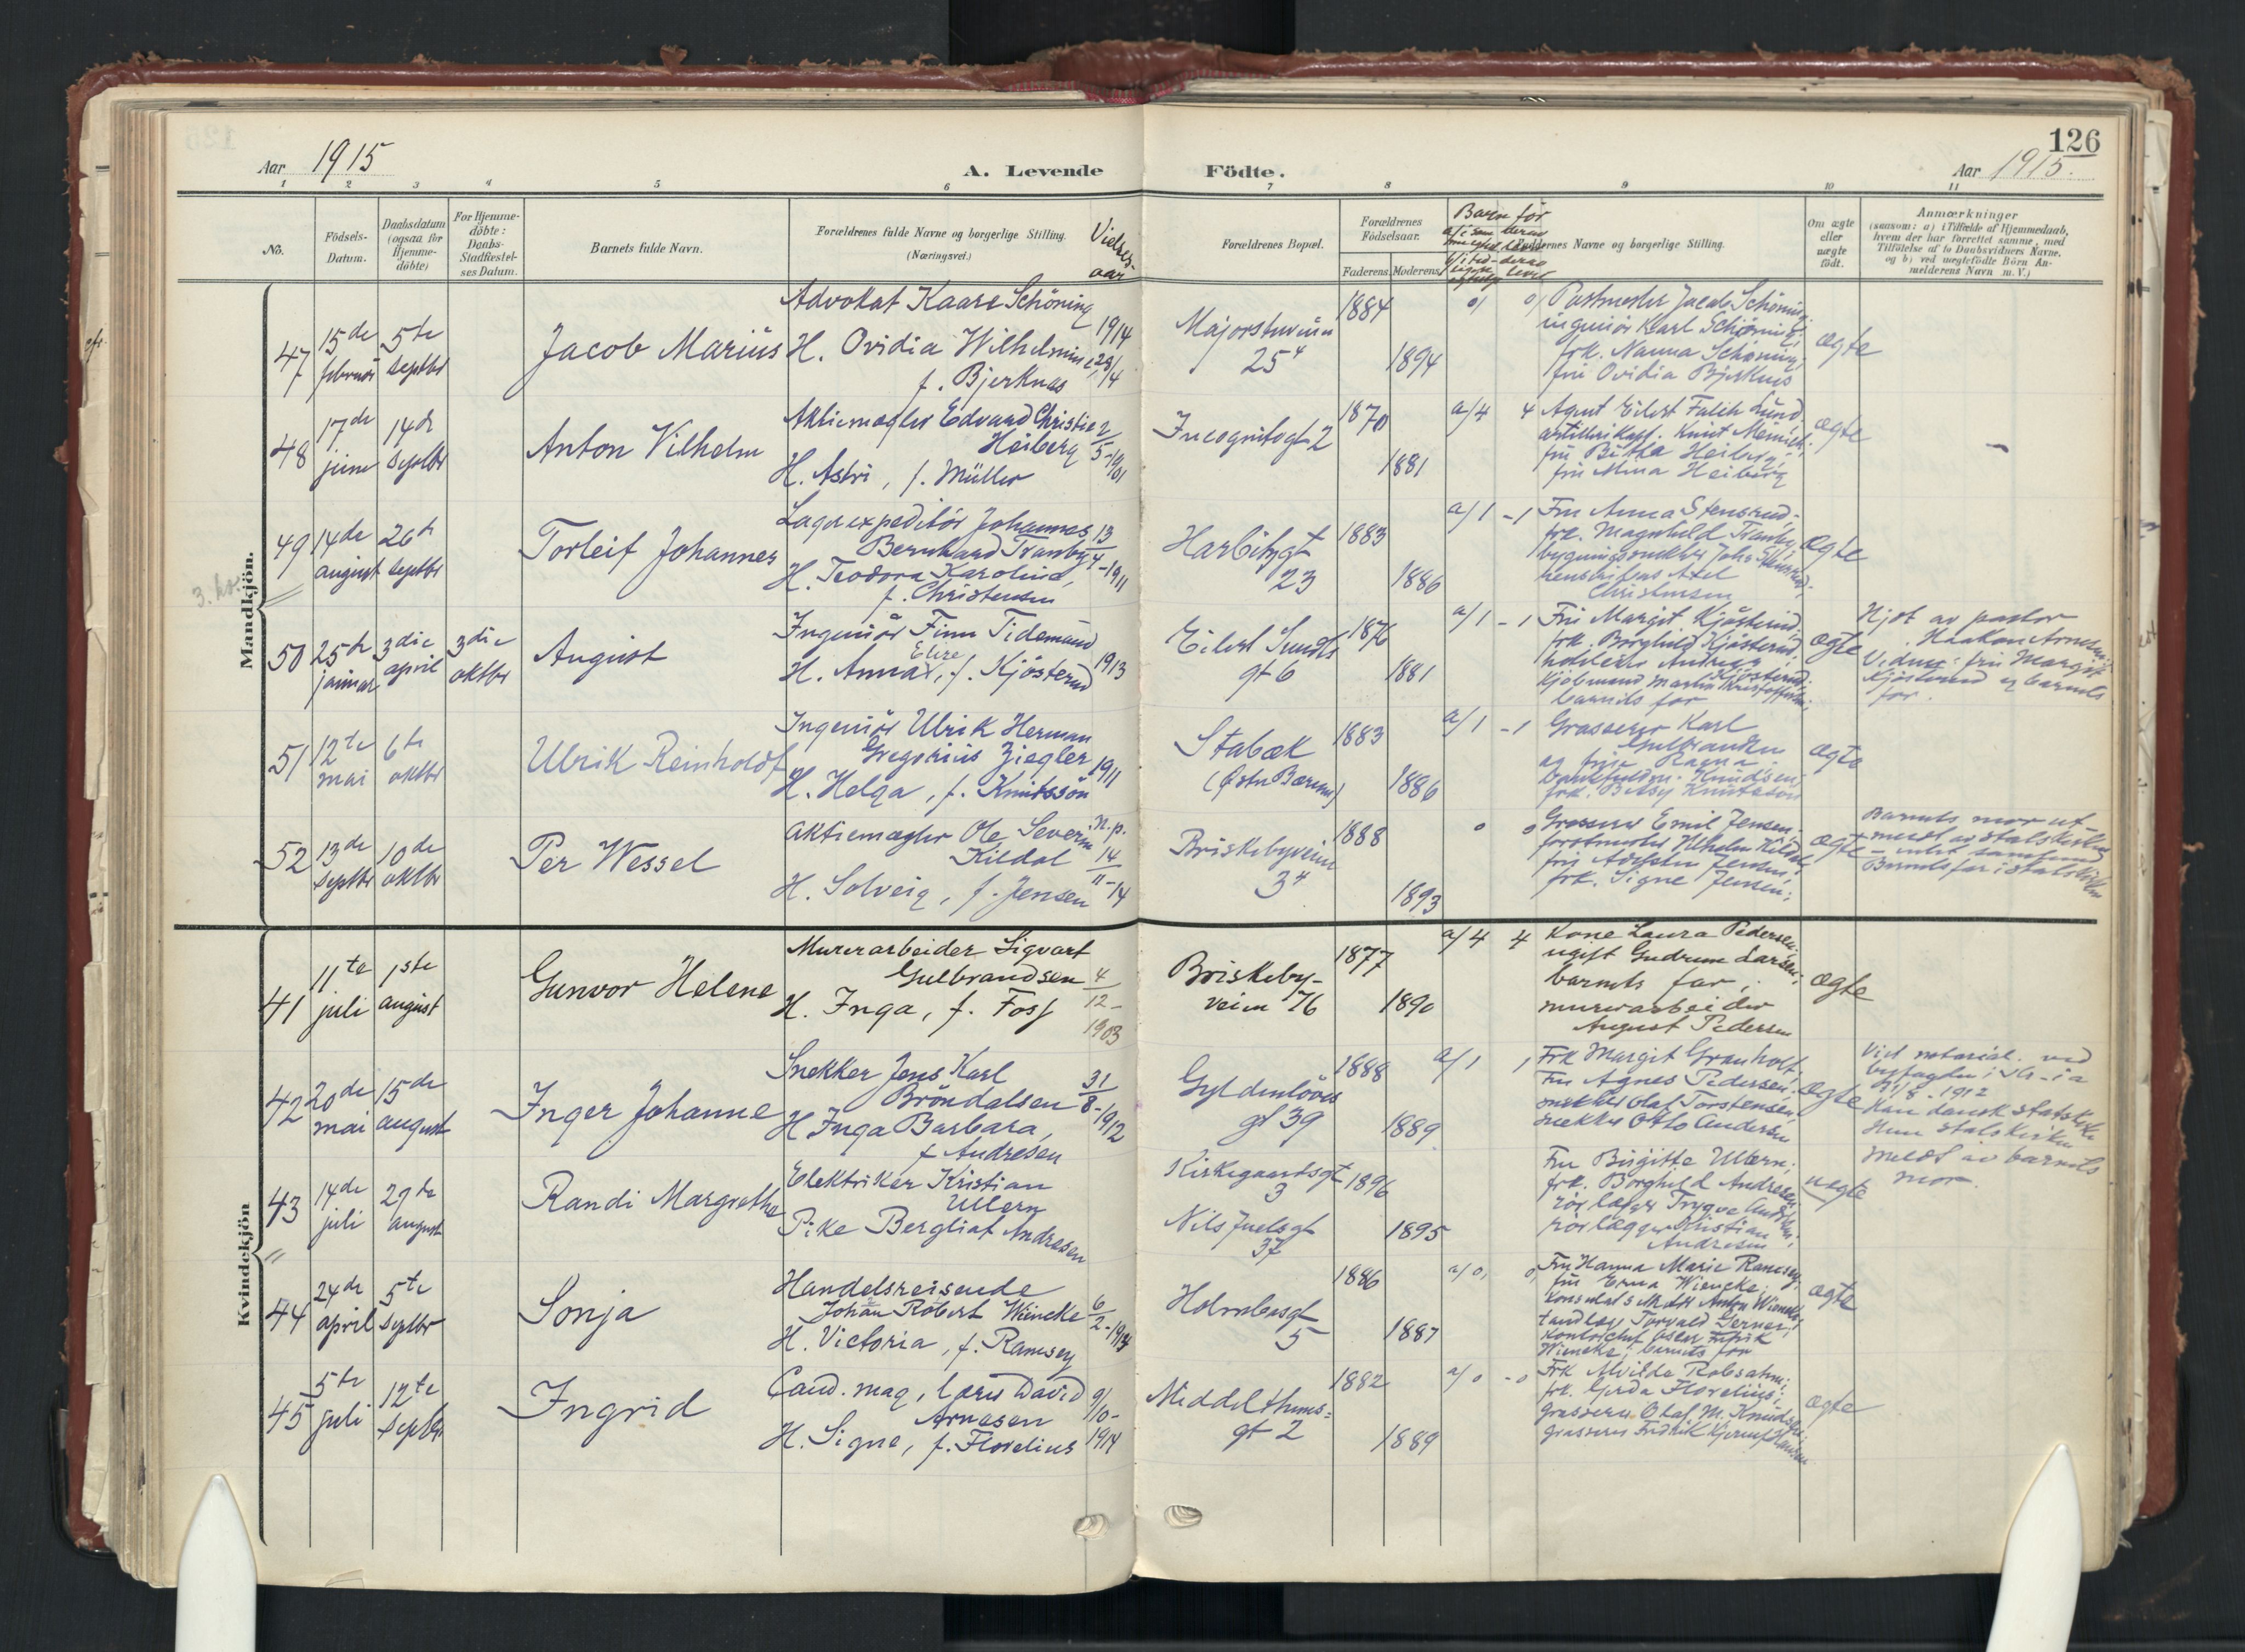 126
Aar 1915
A. Levende Födte.
Aar 1915.
1 2 3 4 5 6 7 8 9 10 11
No.
Födsels-Datum.
Daabsdatum (ogsaa for Hjemme-döbte)
For Hjemme-döbte: Daabs-Stadfæstel-ses Datum.
Barnets fulde Navn.
Forældrenes fulde Navne og borgerlige Stilling. (Næringsvei.)
Vielses-aar
Forældrenes Bopæl.
Forældrenes Födselsaar.
Faderens. Moderens.
Barn før
Faddernes Navne og borgerlige Stilling.
Om ægte eller uægte födt.
Anmærkninger
(saasom: a) i Tilfælde af Hjemmedaab, hvem der har forrettet samme, med Tilföielse af to Daabsvidners Navne. og b) ved uægtefödte Börn An-melderens Navn m. V.)
Mandkjön.
47 15de februar 5te septbr
Jacob Marius
Advokat Kaare Schöning
H. Ovidia Wilhelmine
f. Bjerknæs
1914
Majorstuveien
25 4
1884
1894
Postmester Jacob Schöning;
ingeniör Karl Schöning;
frk. Nanna Schöning;
fru Ovidia Bjerknes
ægte
48 17de juni 14de septbr
Anton Vilhelm
Aktiemægler Edvard Christie
Heiberg
H. Astri, f. Müller
2/5-1901
Incognitogt 2
1870
1881
a/4 4
Agent Eilert Falch Lund
artillerikapt. Knut
fru Heiberg
fru Heiberg
ægte
49 14de august 26de septbr
Torleif Johannes
Lagerexpeditör Johannes
Bernhard Tranby
H. Teodora Karoline,
f. Christensen
13/4-1911
Harbitzgt
23
1883
1886
a/1 -1
Fru Anna Stensrud
frk. Magnhild Tranby
Axel
Christensen
ægte
3.
50 25de januar 3die april 3die oktbr
August
Ingeniör Finn Tidemand
H. Anna Elise, f. Kjösterud
1913
Eilert Sundts
gt 6
1876
1881
a/1 - 1
Fru Margit Kjösterud,
frk. Borghild Kjösterud,
Kjösterud;
Kjöbmand Martin Kristoffersen;
barnets far
ægte
Hjdt av pastor
Haakon Arnesen
Vidner: fru Margit
Kjösterud og barnets
far.
51 12te mai 6te oktbr
Ulrik Reinholdt
Ingeniör Ulrik Herman
Gregorius Ziegler
H. Helga, f. Knutsson
1911
Stabæk
(Østre Bærum)
1883
1886
a/1 -1
Grosserer Karl
Gulbrandsen
og frue Ragna
Knudsen;
frk. Betsy Knutsson
ægte
52 13de septbr 10de oktbr
Per Wessel
Aktiemægler Ole Severin
Kildal
H. Solveig, f. Jensen
n.p.
14/11-14
Briskebyveien
3 4
1888
1893
0 0
Grosserer Emil Jensen;
forstmester Vilhelm Kildal
fru Jensen;
frk. Signe Jensen;
ægte
Barnets mor ut-
meldt av statskirken
- intet samfund
Barnets far i statskirken
Kvindekjön
41 11te juli 1ste august
Gunvor Helene
Murerarbeider Sigvart
Gulbrandsen
H. Inga, f. Foss
4/12-1903
Briskeby-
veien 76
1877
1890
a/4 4
Kone Laura Pedersen;
ugift Gudrun Larsen;
barnets far;
murerarbeider
August Pedersen
ægte
42 20de mai 15de august
Inger Johanne
Snekker Jens Karl
Bröndalsen
H. Inga Barbara,
f. Andresen
31/8-1912
Gyldenlöves
gt 39
1888
1889
a/1 1
Frk Margit Granholt;
Fru Agnes Pedersen;
snekker Olaf Torstensen;
snekker Otto Andersen
ægte
Viet notarial. ved
byfogden i Kr-ia
31/8-1912
Han dansk statskirke
Hun statskirken
43 14de juli 29de august
Randi Margrethe
Elektriker Kristian
Ullern
Pike Bergliot Andresen
Kirkegaardsgt
3
Nils Juelsgt
37
1896
1895
Fru Birgitte Ullern;
frk. Borghild Andresen
rörlægger Trygve Andresen;
rörlægger Kristian
Andresen
uægte
Meldt av barnets
mor.
44 24de april 5te septbr
Sonja
Handelsreisende
Johan Robert Wiencke
H. Victoria, f. Ramsey
6/2-1914
Holmboesgt
5
1886
1887
a/0, 0,
Fru Hanna Marie Ramsey;
fru Erna Wiencke;
Anton Wiencke;
tandlæge Torvald Gerner;
kontorchef
Wiencke; barnets far
ægte
45 5te juli 12te septbr
Ingrid
Cand. mag, lærer David
Arnesen
H. Signe, f. Florelius
9/10-1914
Middelthuns-
gt 2
1882
1889
a/0 -0
Frk Alvilda Robsahm;
frk. Gerda Florelius;
grosserer Olaf M. Knudsen;
grosserer Fredrik
ægte